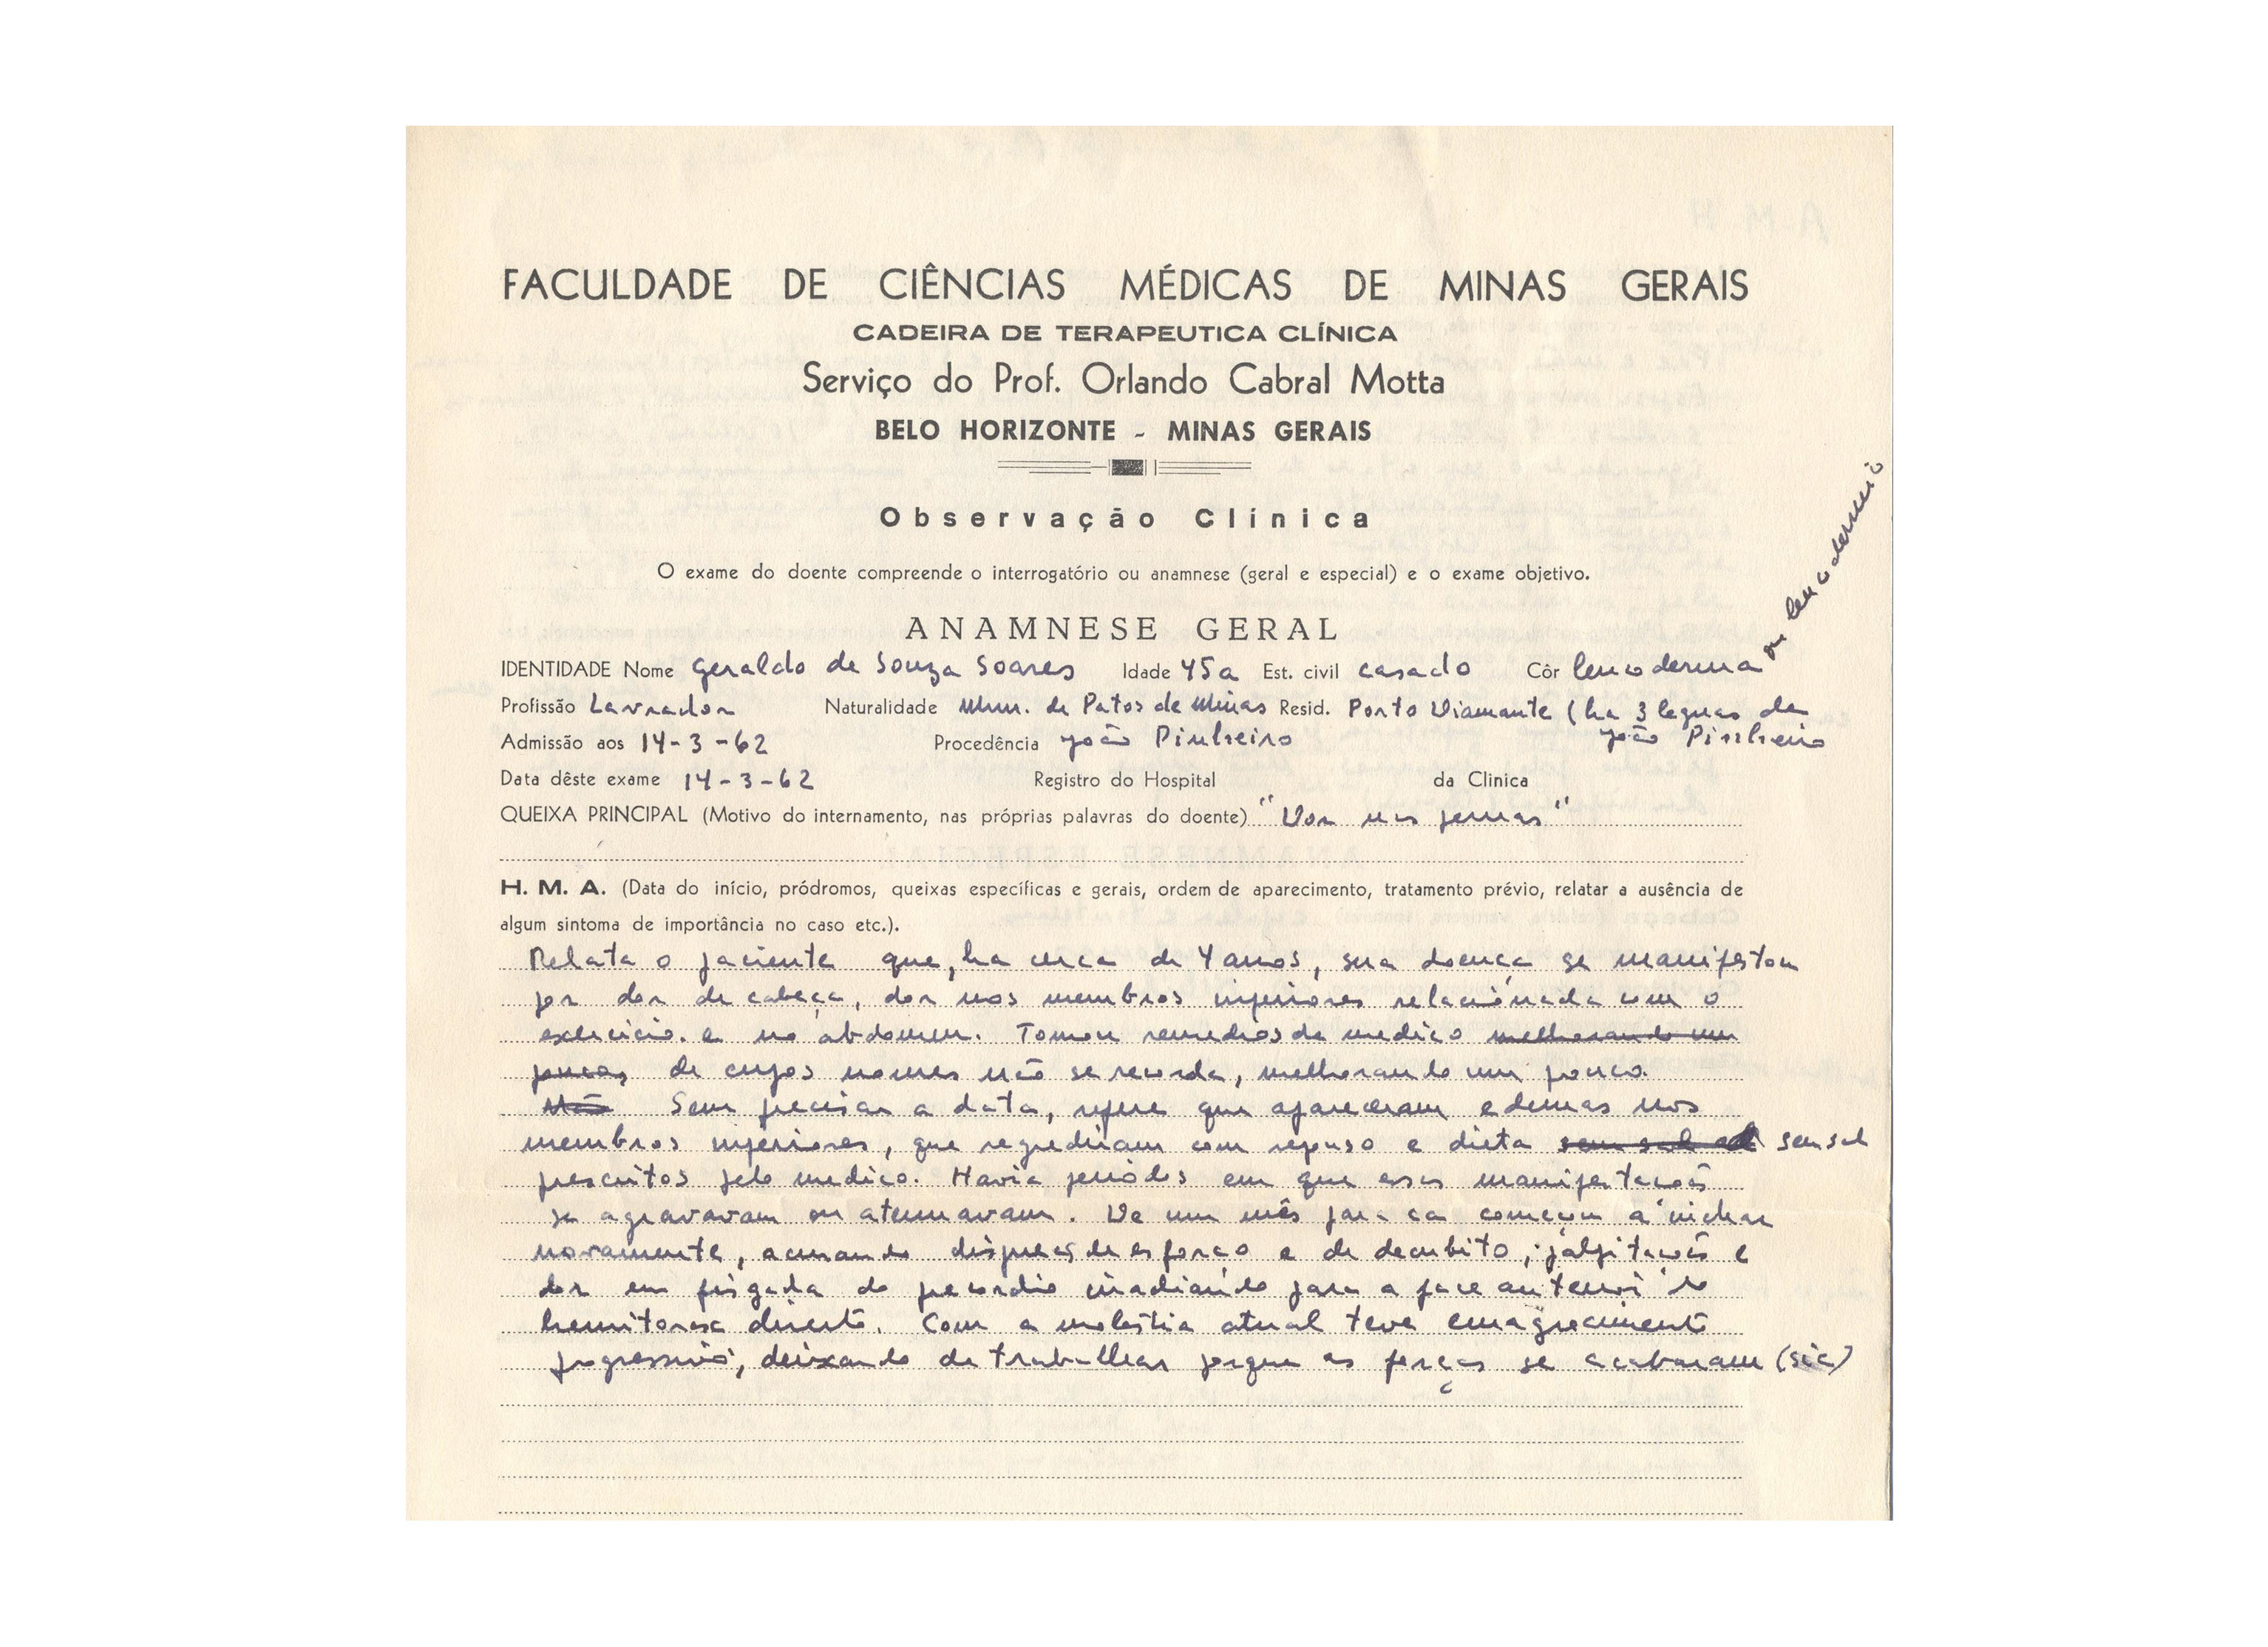 FACULDADE DE CIÊNCIAS MÉDICAS DE MINAS GERAIS
CADEIRA DE TERAPEUTICA CLÍNICA
Serviço do Prof. Orlando Cabral Motta
BELO HORIZONTE - MINAS GERAIS
Observação Clínica
O exame do doente compreende o interrogatório ou anamnese (geral e especial) e o exame objetivo.
ANAMNESE GERAL
IDENTIDADE Nome Geraldo de Souza Soares Idade 45a Est. civil casado Côr leucoderma ou leucodermio
Profissão Lavrador Naturalidade Mun. de Patos de Minas Resid. Porto Diamante (ha 3 leguas de
Admissão aos 14-3-62 Procedência João Pinheiro João Pinheiro
Data dêste exame 14-3-62 Registro do Hospital da Clinica
QUEIXA PRINCIPAL (Motivo do internamento, nas próprias palavras do doente) "Dor nas pernas"
H. M. A. (Data do início, pródromos, queixas específicas e gerais, ordem de aparecimento, tratamento prévio, relatar a ausência de
algum sintoma de importância no caso etc.).
Relata o paciente que, ha cerca de 4 anos, sua doença se manifestou
por dor de cabeça, dor nos membros inferiores relacionada com o
exercicio. e no abdomem. Tomou remedios de medico melhorando um
pouco, de cujos nomes não se recorda, melhorando um pouco.
Não Sem precisar a data, refere que apareceram edemas nos
membros inferiores, que regrediam com repouso e dieta sem sal sem sal
prescritos pelo medico. Havia periodos em que essas manifestacoẽs
se agravavam ou atenuavam. De um mês para ca começou a inchar
novamente, acusando dispneas de esforço e de decubito, palpitacoẽs e
dor em fisgada do precordio irradiando para a face anterior do
hemitorax direito. Com a molestia atual teve emagrecimento
progressivo, deixando de trabalhar porque as forças se acabaram (sic)